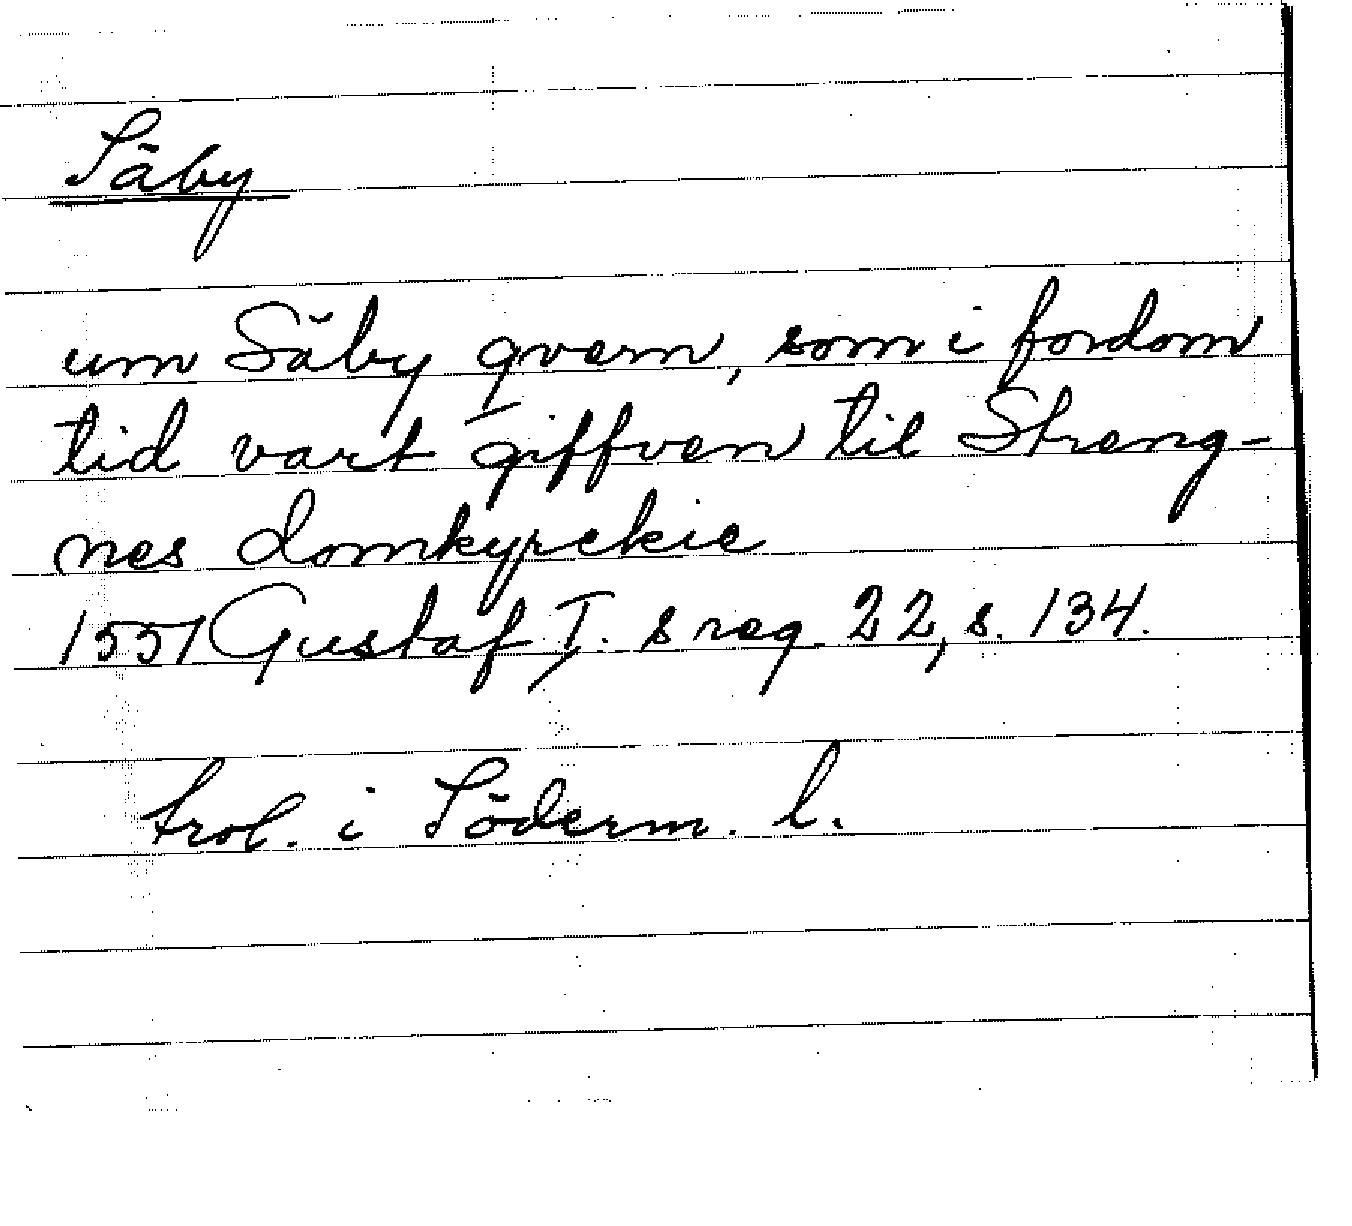 Säby
um Säby qvarn, som i fordom
tid vart giffven til Streng-
nes domkyrckie
1551 Gustaf I. s reg. 22, s. 134.
trol. i Söderm. l.